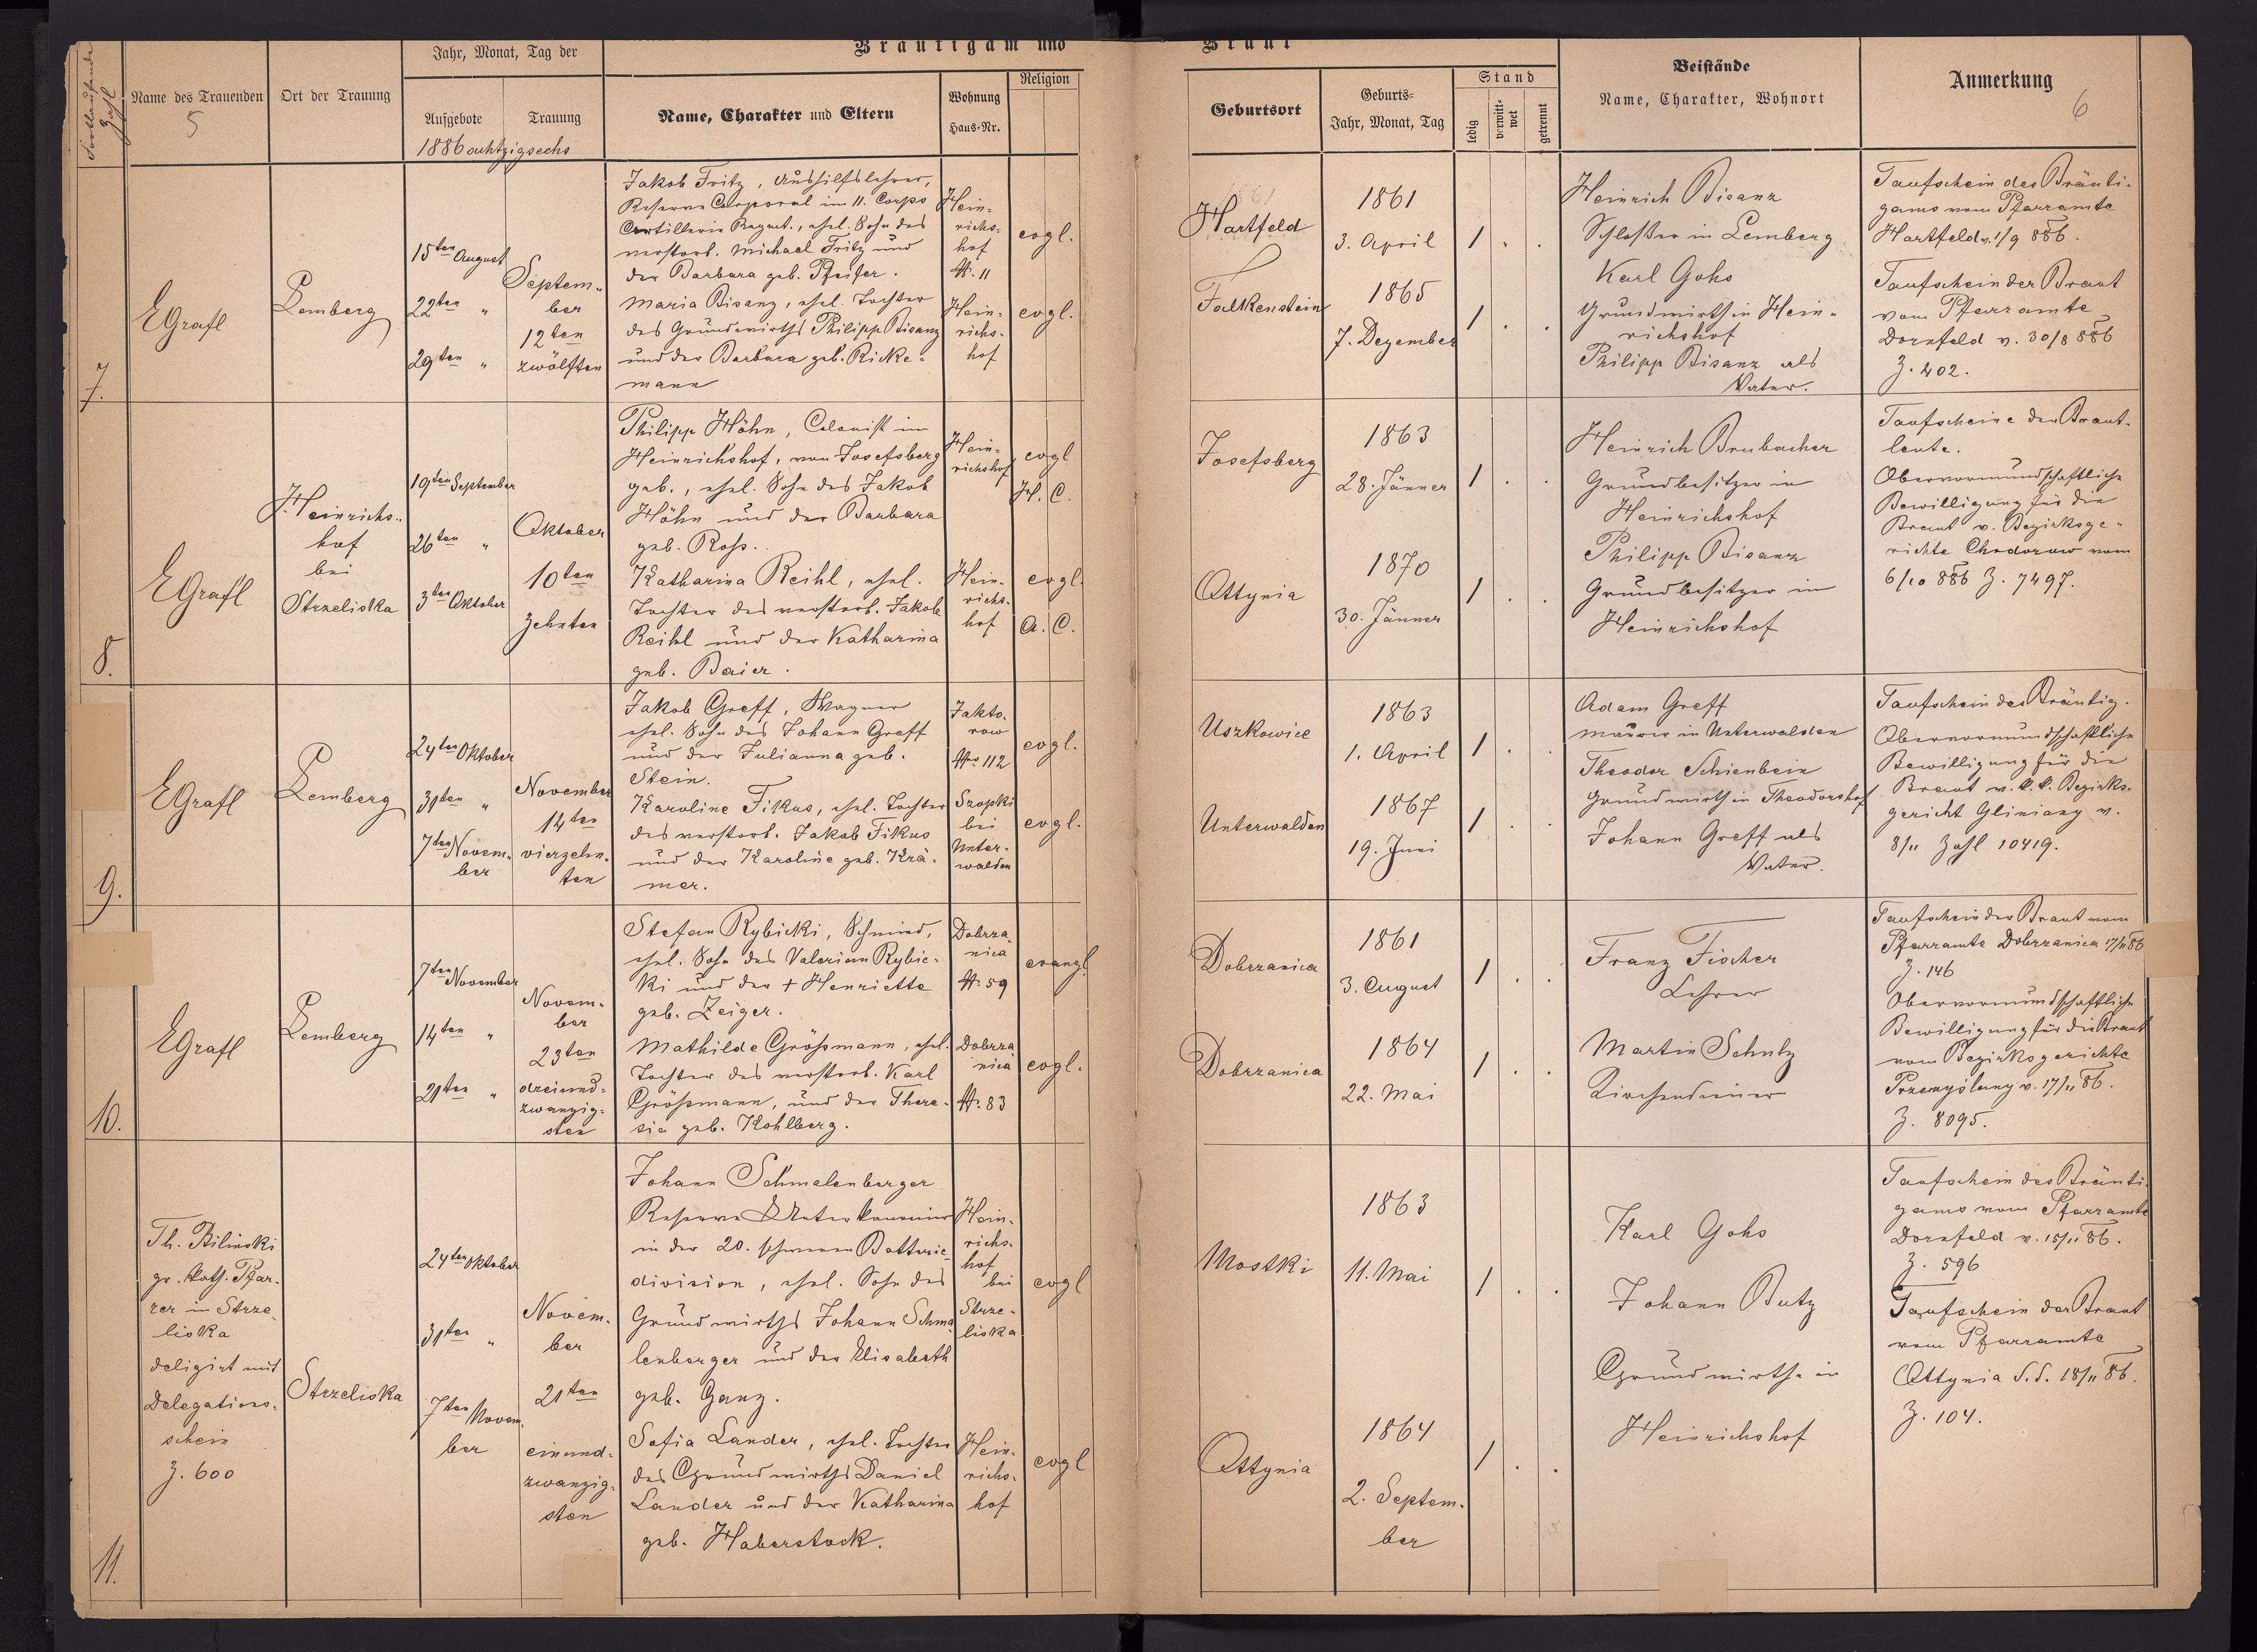 Fortlaufende Zahl
Name des Trauenden
5
Ort der Trauung
Jahr, Monat, Tag der
Aufgebote
Trauung
1886 achtzigsechs
Bräutigam und
Name, Charakter und Eltern
Wohnung
Haus-Nr.
Religion
Braut
Geburtsort
Geburts-
Jahr, Monat, Tag
Stand
ledig
verwit-
wet
getrennt
Beistände
Name, Charakter, Wohnort
Anmerkung
6
7.
EGrafl
Lemberg
15ten August
22ten "
29ten "
Septem-
ber
12ten
zwölften
Jakob Fritz, Aushilfslehrer,
Reserve Corporal im 11. Corps
Artillerie Regmt., ehel. Sohn des
verstorb. Michael Fritz und
der Barbara geb. Pfeifer.
Maria Bisanz, ehel. Tochter
des Grundwirths Philipp Bisanz
und der Barbara geb. Ricke-
mann
Hein-
richs-
hof
N. 11
Hein-
richs-
hof
evgl.
evgl.
1861
Hartfeld
Falkenstein
1861
3. April
1865
7. Dezember
1 . .
1 . .
Heinrich Bisanz
Schlosser in Lemberg
Karl Gohs
Grundwirth in Hein-
richshof
Philipp Bisanz als
Vater.
Taufschein des Bräuti-
gams vom Pfarramte
Hartfeld v. 1/9 886.
Taufschein der Braut
vom Pfarramte
Dornfeld v. 30/8 886
Z. 402.
8.
EGrafl
Heinrichs-
hof
bei
Strzeliska
19ten September
26ten "
3ten Oktober
Oktober
10ten
Zehnten
Philipp Höhn, Colonist in
Heinrichshof, von Josefsberg
geb., ehel. Sohn des Jakob
Höhn und der Barbara
geb. Ross.
Katharina Reihl, ehel.
Tochter des verstorb. Jakob
Reihl und der Katharina
geb. Baier.
Hein-
richshof
Hein-
richs-
hof
evgl
H. C.
evgl.
A. C.
Josefsberg
Ottynia
1863
28. Jänner
1870
30. Jänner
1 . .
1 . .
Heinrich Brubacher
Grundbesitzer in
Heinrichshof
Philipp Bisanz
Grundbesitzer in
Heinrichshof
Taufscheine der Braut-
leute.
Obervormundschaftliche
Bewilligung für die
Braut v. Bezirksge-
richte Chodorow vom
6/10 886 Z. 7497.
9.
EGrafl
Lemberg
24ten Oktober
31ten "
7ten Novem-
ber
November
14ten
vierzehn-
ten
Jakob Greff, Wagner
ehel. Sohn des Johann Greff
und der Julianna geb.
Stein.
Karoline Fikus, ehel. Tochter
des verstorb. Jakob Fikus
und der Karoline geb. Krä-
mer.
Jakto-
row
Nr 112
Szopki
bei
Unter-
walden
evgl.
evgl.
Uszkowice
Unterwalden
1863
1. April
1867
19. Juni
1 . .
1 . .
Adam Greff
Maurer in Unterwalden
Theodor Schienbein
Grundwirth in Theodorshof
Johann Greff als
Vater.
Taufschein des Bräutig.
Obervormundschaftliche
Bewilligung für die
Braut v. k. k. Bezirks-
gericht Gliniany v.
8/11 Zahl 10419.
10.
EGrafl
Lemberg
7ten November
14ten "
21ten "
Novem-
ber
23ten
dreiund-
zwanzig-
sten
Stefan Rybicki, Schmied,
ehel. Sohn des Valerian Rybic-
ki und der + Henriette
geb. Zeiger.
Mathilde Grössmann, ehel.
Tochter des verstorb. Karl
Grössmann, und der There-
sia geb. Kohlberg.
Dobrza-
nica
N. 59
Dobrza
nica
N. 83
evangl
evgl.
Dobrzanica
Dobrzanica
1861
3. August
1864
22. Mai
1 . .
1 . .
Franz Fischer
Lehrer
Martin Schulz
Kirchendiener
Taufschein der Braut vom
Pfarramte Dobrzanica 17/11 86
Z. 146
Obervormundschaftliche
Bewilligung für die Braut
vom Bezirksgerichte
Przemyślany v. 17/11 86.
Z. 8095.
11.
Th. Bilinski
gr. kath. Pfar-
rer in Strze
liska
deligirt mit
Delegations-
schein
Z. 600
Strzeliska
24ten Oktober
31ten "
7ten Novem-
ber
Novem-
ber
21ten
einund-
zwanzig-
sten
Johann Schmalenberger
Reserve Unterkanonier
in der 20. schweren Batterie-
division, ehel. Sohn des
Grundwirths Johann Schma
lenberger und der Elisabeth
geb. Ganz.
Sofia Lander, ehel. Tochter
des Grundwirths Daniel
Lander und der Katharina
geb. Haberstock.
Hein-
richs-
hof
bei
Strze-
liska
Hein-
richs-
hof
evgl
evgl
Mostki
Ottynia
1863
11. Mai
1864
2. Septem-
ber
1 . .
1 . .
Karl Gohs
Johann Butz
Grundwirthe in
Heinrichshof
Taufschein des Bräuti-
gams vom Pfarramte
Dornfeld v. 15/11 86.
Z. 596
Taufschein der Braut
vom Pfarramte
Ottynia d. d. 18/11 86.
Z. 104.